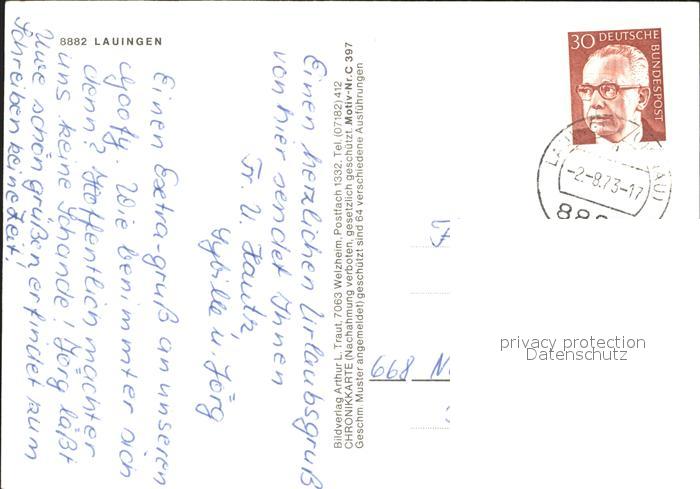 8882 LAUINGEN
Einen herzlichen Urlaubsgruß
von hier sendet Ihnen
Fr. U.
Sybille u. Jörg
Einen Extra-gruß an unseren
Goofy. Wie benimmter sich
denn? Hoffentlich machter
uns keine Schande! Jörg läßt
Uwe schön grüßen er findet zum
Schreiben keine Zeit!
Bildverlag Arthur L. Traut, 7063 Welzheim, Postfach 1332, Tel. (07182) 412
CHRONIKKARTE (Nachahmung verboten, gesetzlich geschützt. Motiv-Nr. C 397
Geschm. Muster angemeldet) geschützt sind 64 verschiedene Ausführungen
30 DEUTSCHE
BUNDESPOST
-2.-8.73-17
668 N
privacy protection
Datenschutz